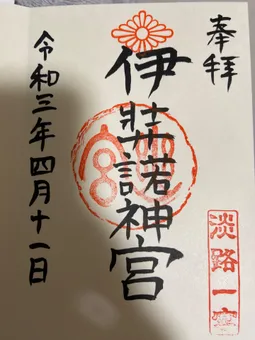 奉拝
淡路一宮
伊弉諾神宮
令和三年四月十一日